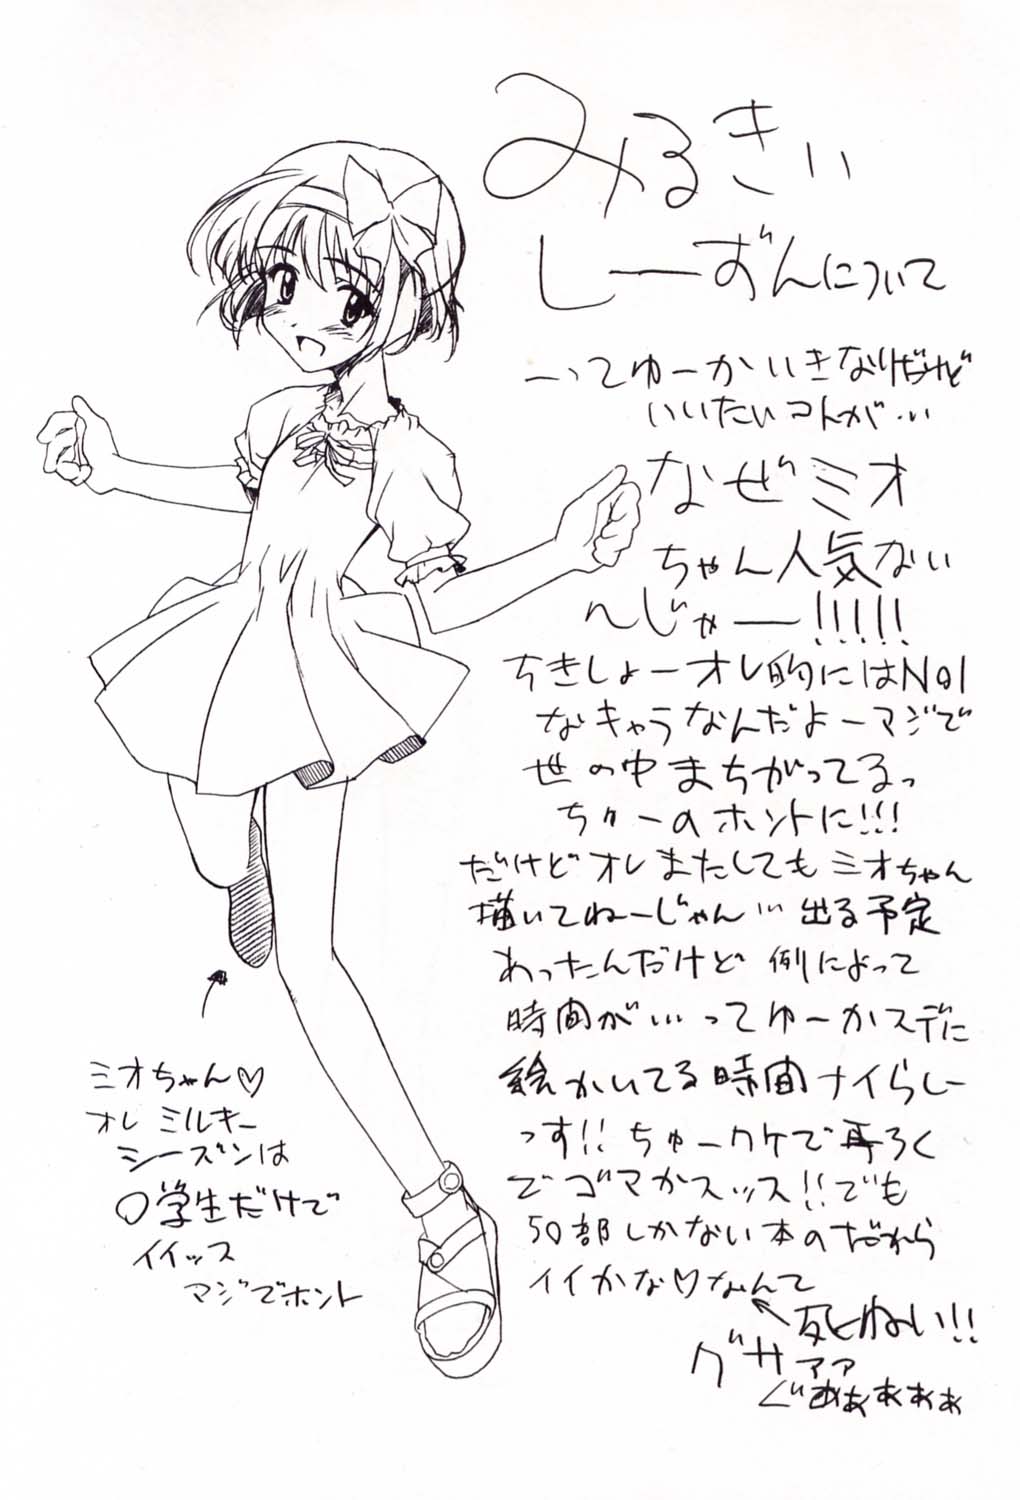 みるきい
しーずんについて
―ってゆーかいきなりだけど
いいたいコトが…
なぜミオ
ちゃん人気ない
んじゃー!!!!!
ちきしょーオレ的にはNo1
なキャラなんだよーマジで
世の中まちがってるっ
ちゅーのホントに!!!
だけどオレまたしてもミオちゃん
描いてねーじゃん…出る予定
あったんだけど 例によって
時間が…ってゆーかスデに
絵かいてる時間ナイらしー
っす!!ちゅーワケで再ろく
でゴマかスッス!!でも
50部しかない本のだから
イイかな♡なんて
死ねい!!
グサァァ
ぐああぁぁぁ
ミオちゃん♡
オレ ミルキー
シーズンは
○学生だけで
イイッス
マジでホント